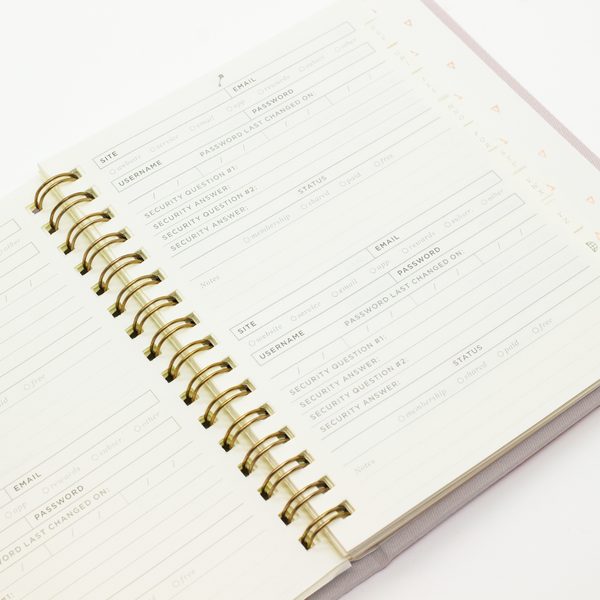 SITE EMAIL
website service email app rewards subscr. other
USERNAME PASSWORD
PASSWORD LAST CHANGED ON:
/ / / / / /
SECURITY QUESTION #1:
SECURITY ANSWER:
SECURITY QUESTION #2:
SECURITY ANSWER:
STATUS
membership shared paid free
Notes
SITE EMAIL
website service email app rewards other
USERNAME PASSWORD
PASSWORD LAST CHANGED ON:
/ / / / / /
SECURITY QUESTION #1:
SECURITY ANSWER:
SECURITY QUESTION #2:
SECURITY ANSWER:
STATUS
membership shared paid free
Notes
other
free
EMAIL
app rewards other
PASSWORD
WORD LAST CHANGED ON:
#1:
free